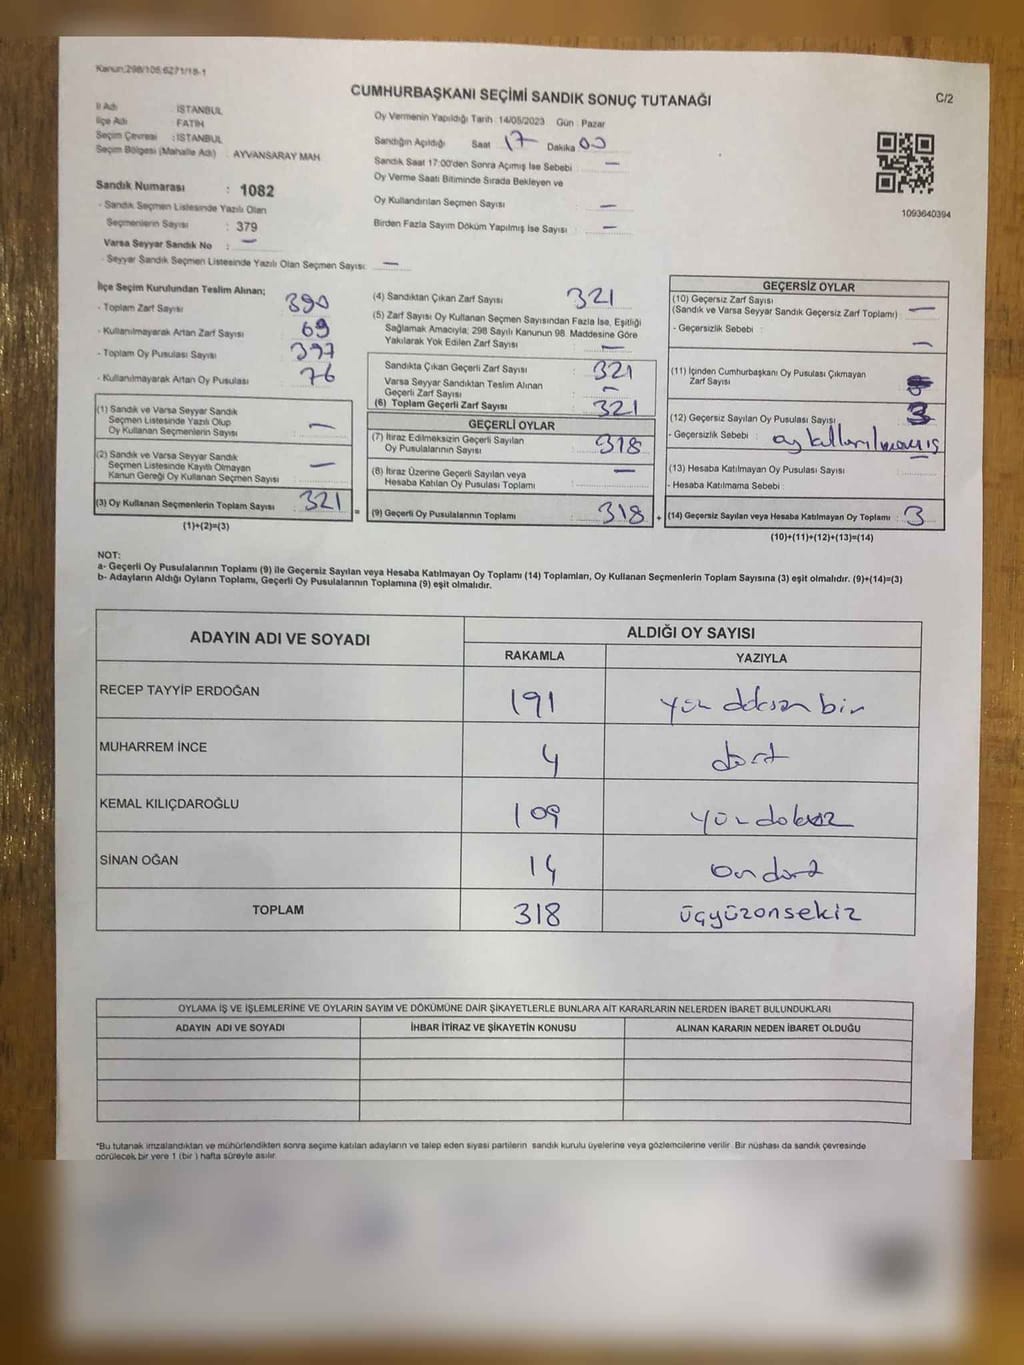 Kanun:298/105;6271/18-1
CUMHURBAŞKANI SEÇİMİ SANDIK SONUÇ TUTANAĞI
C/2
İl Adı : İSTANBUL
İlçe Adı : FATİH
Seçim Çevresi : İSTANBUL
Seçim Bölgesi (Mahalle Adı) : AYVANSARAY MAH
Oy Vermenin Yapıldığı Tarih :14/05/2023 Gün : Pazar
Sandığın Açıldığı Saat 17 Dakika 00
Sandık Saat 17:00'den Sonra Açımış İse Sebebi : —
Oy Verme Saati Bitiminde Sırada Bekleyen ve
Oy Kullandırılan Seçmen Sayısı : —
Birden Fazla Sayım Döküm Yapılmış İse Sayısı : —
1093640394
Sandık Numarası : 1082
- Sandık Seçmen Listesinde Yazılı Olan
Seçmenlerin Sayısı : 379
Varsa Seyyar Sandık No : —
- Seyyar Sandık Seçmen Listesinde Yazılı Olan Seçmen Sayısı: —
İlçe Seçim Kurulundan Teslim Alınan;
- Toplam Zarf Sayısı : 390
- Kullanılmayarak Artan Zarf Sayısı : 69
- Toplam Oy Pusulası Sayısı : 397
- Kullanılmayarak Artan Oy Pusulası : 76
(1) Sandık ve Varsa Seyyar Sandık
Seçmen Listesinde Yazılı Olup
Oy Kullanan Seçmenlerin Sayısı : —
(2) Sandık ve Varsa Seyyar Sandık
Seçmen Listesinde Kayıtlı Olmayan
Kanun Gereği Oy Kullanan Seçmen Sayısı : —
(3) Oy Kullanan Seçmenlerin Toplam Sayısı : 321 =
(1)+(2)=(3)
(4) Sandıktan Çıkan Zarf Sayısı : 321
(5) Zarf Sayısı Oy Kullanan Seçmen Sayısından Fazla İse, Eşitliği
Sağlamak Amacıyla; 298 Sayılı Kanunun 98. Maddesine Göre
Yakılarak Yok Edilen Zarf Sayısı : —
Sandıkta Çıkan Geçerli Zarf Sayısı : 321
Varsa Seyyar Sandıktan Teslim Alınan
Geçerli Zarf Sayısı : —
(6) Toplam Geçerli Zarf Sayısı : 321
GEÇERLİ OYLAR
(7) İtiraz Edilmeksizin Geçerli Sayılan
Oy Pusulalarının Sayısı : 318
(8) İtiraz Üzerine Geçerli Sayılan veya
Hesaba Katılan Oy Pusulası Toplamı : —
(9) Geçerli Oy Pusulalarının Toplamı : 318 +
GEÇERSİZ OYLAR
(10) Geçersiz Zarf Sayısı
(Sandık ve Varsa Seyyar Sandık Geçersiz Zarf Toplamı) : —
- Geçersizlik Sebebi : —
(11) İçinden Cumhurbaşkanı Oy Pusulası Çıkmayan
Zarf Sayısı :
(12) Geçersiz Sayılan Oy Pusulası Sayısı : 3
- Geçersizlik Sebebi : oy kullanılmamış
(13) Hesaba Katılmayan Oy Pusulası Sayısı : —
- Hesaba Katılmama Sebebi :
(14) Geçersiz Sayılan veya Hesaba Katılmayan Oy Toplamı : 3
(10)+(11)+(12)+(13)=(14)
NOT:
a- Geçerli Oy Pusulalarının Toplamı (9) ile Geçersiz Sayılan veya Hesaba Katılmayan Oy Toplamı (14) Toplamları, Oy Kullanan Seçmenlerin Toplam Sayısına (3) eşit olmalıdır. (9)+(14)=(3)
b- Adayların Aldığı Oyların Toplamı, Geçerli Oy Pusulalarının Toplamına (9) eşit olmalıdır.
ADAYIN ADI VE SOYADI ALDIĞI OY SAYISI
RAKAMLA YAZIYLA
RECEP TAYYİP ERDOĞAN 191 yüz doksan bir
MUHARREM İNCE 4 dört
KEMAL KILIÇDAROĞLU 109 yüz dokuz
SİNAN OĞAN 14 on dört
TOPLAM 318 üçyüzonsekiz
OYLAMA İŞ VE İŞLEMLERİNE VE OYLARIN SAYIM VE DÖKÜMÜNE DAİR ŞİKAYETLERLE BUNLARA AİT KARARLARIN NELERDEN İBARET BULUNDUKLARI
ADAYIN ADI VE SOYADI İHBAR İTİRAZ VE ŞİKAYETİN KONUSU ALINAN KARARIN NEDEN İBARET OLDUĞU
*Bu tutanak imzalandıktan ve mühürlendikten sonra seçime katılan adayların ve talep eden siyasi partilerin sandık kurulu üyelerine veya gözlemcilerine verilir. Bir nüshası da sandık çevresinde
görülecek bir yere 1 (bir ) hafta süreyle asılır.